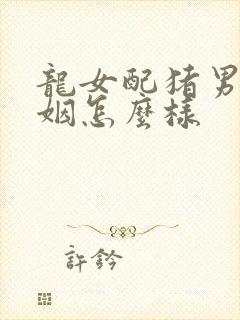 龍女配猪男
姻怎麼樣
許鈴